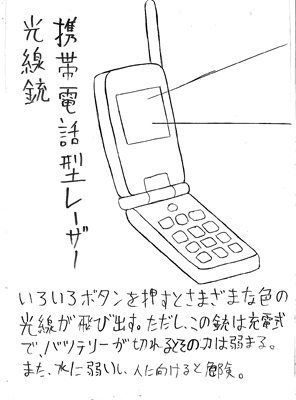 携帯電話型レーザー
光線銃
いろいろボタンを押すとさまざまな色の
光線が飛び出す。ただし、この銃は充電式
で、バッテリーが切れるとその力は弱まる。
また、水に弱いし、人に向けると危険。